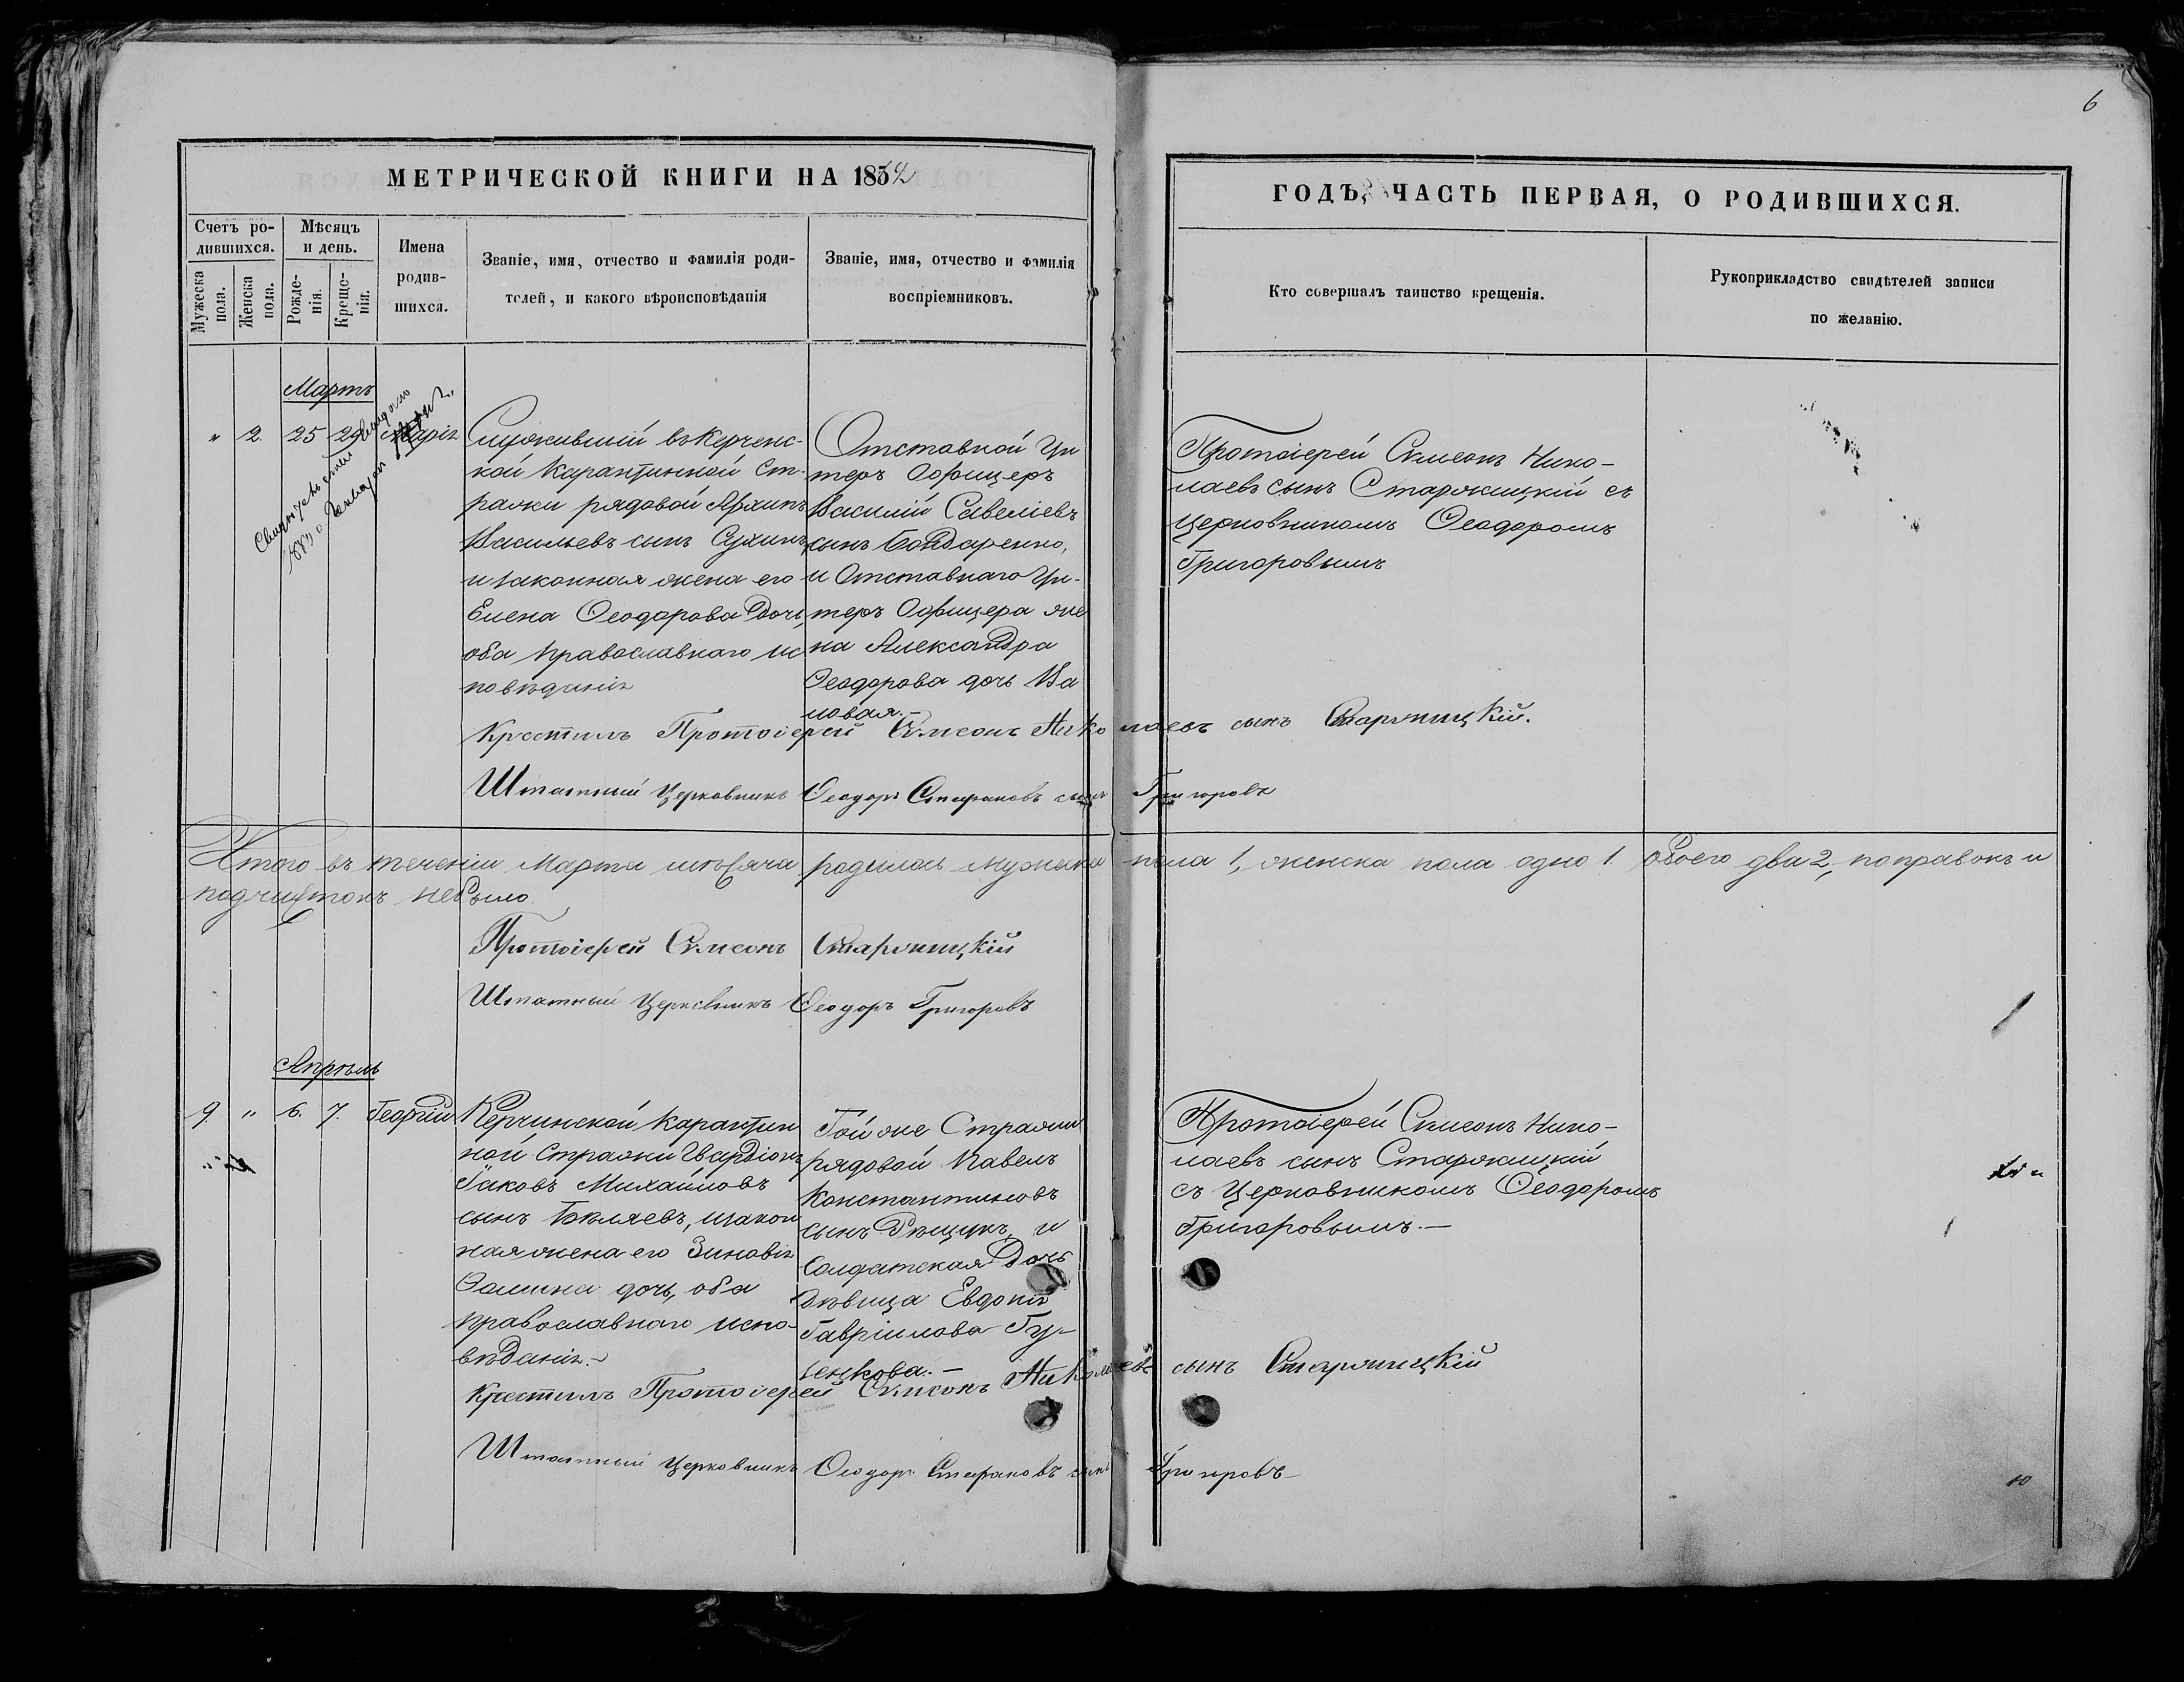 6
МЕТРИЧЕСКОЙ КНИГИ НА 1862
ГОДЪ, ЧАСТЬ ПЕРВАЯ, О РОДИВШИХСЯ.
Счетъ ро-
дившихся.
Мужеска
пола.
Женска
пола.
Мѣсяцъ
и день.
Рожде-
нія.
Креще-
нія.
Имена
родив-
шихся.
Званіе, имя, отчество и фамилія роди-
телей, и какого вѣроисповѣданія
Званіе, имя, отчество и фамилія
воспріемниковъ.
Кто совершалъ таинство крещенія.
Рукоприкладство свидѣтелей записи
по желанію.
Мартъ
" 2. 25 29 Марія
Служившій въ Керченс-
кой Карантинной Ст-
ражи рядовой Архипъ
Васильевъ сынъ Сухинъ,
и законная жена его
Елена Ѳеодорова дочь,
оба православнаго ис
повѣданія
Отставной Ун
теръ Офицеръ
Василій Савеліевъ
сынъ Бондаренко,
и Отставнаго Ун-
теръ Офицера же
на Александра
Ѳеодорова дочь Ва
новая.-
Протоіерей Сѵмеонъ Нико-
лаевъ сынъ Старожицкій съ
Церковникомъ Ѳеодоромъ
Григоровымъ
Крестилъ Протоіерей Сѵмеонъ Николаевъ сынъ Старжицкій.
Штатный Церковникъ Ѳеодоръ Стефановъ сынъ Григоровъ
Итого въ теченіи Марта мѣсяца родилось мужеска пола 1, женска пола одно 1. обоего два 2, поправокъ и
подчистокъ небыло
Протоіерей Сѵмеонъ Старжицкій
Штатный Церковникъ Ѳеодоръ Григоровъ
Апрѣль
9. " 6. 7. Георгій
Керчинской Карантин
ной Стражи Гвардіонъ
Іаковъ Михайловъ
сынъ Бѣляевъ, изакон
ная жена его Зиновія
Ѳомина дочь, оба
православнаго испо-
вѣданія.-
Той же Стражи
рядовой Павелъ
Константиновъ
сынъ Рѣщукъ, и
Солдатская Дочь
Дѣвица Евдокія
Гавріилова Гу-
ценкова.-
Протоіерей Сѵмеонъ Нико-
лаевъ сынъ Старожицкій
съ Церковникомъ Ѳеодоромъ
Григоровымъ.-
Крестилъ Протоіерей Сѵмеонъ Николаевъ сынъ Старжицкій
Штатный Церковникъ Ѳеодоръ Стефановъ сынъ Григоровъ